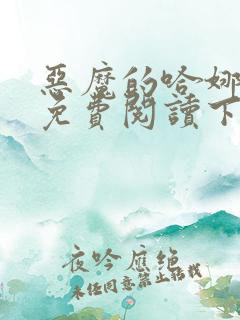 惡魔的哈娜
免費閱讀下
夜吟應絶
未经同意禁止转载